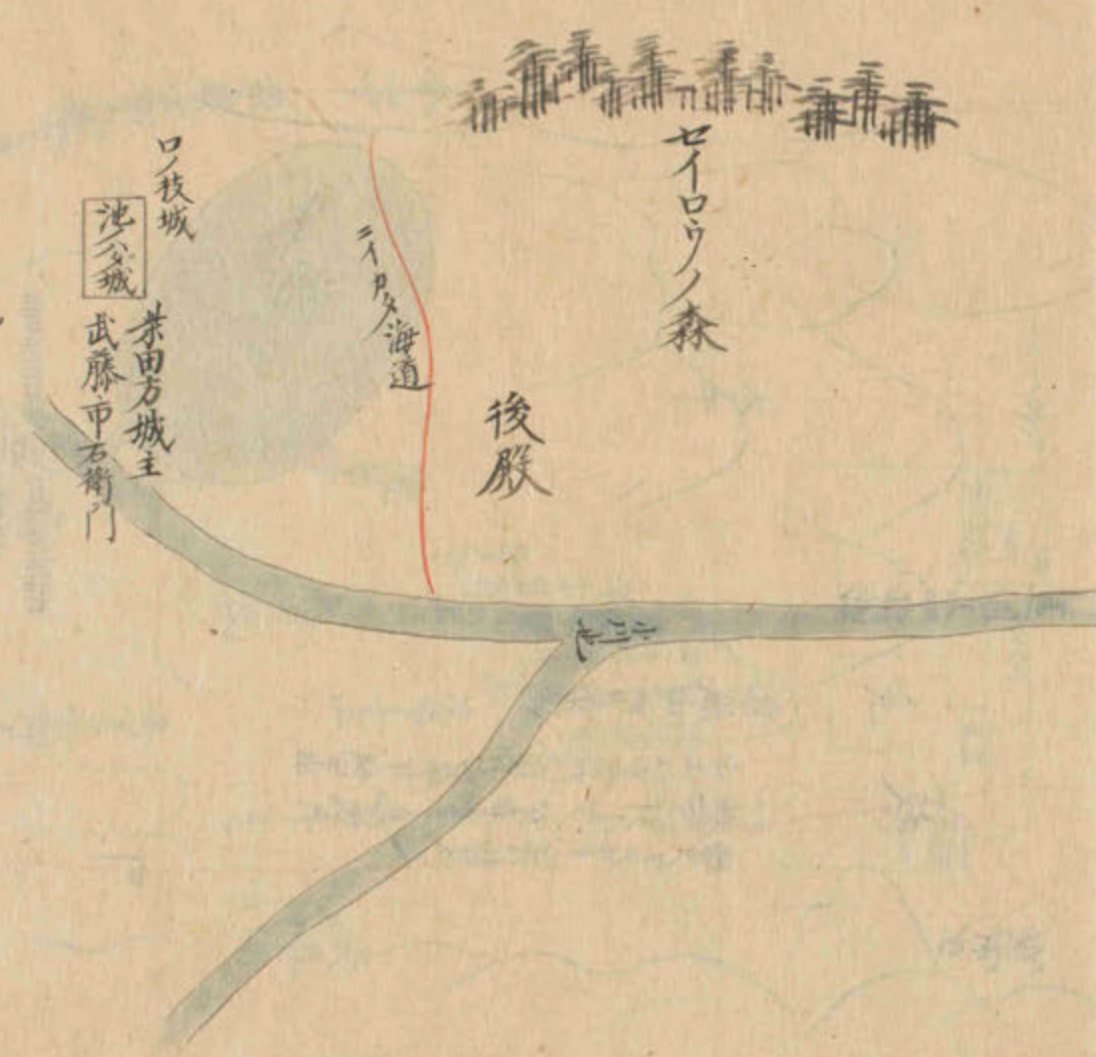 セイロウノ森
後殿
ニイカタ海道
口ノ枝城
池ノハタ城
柴田方城主
武藤市右衛門